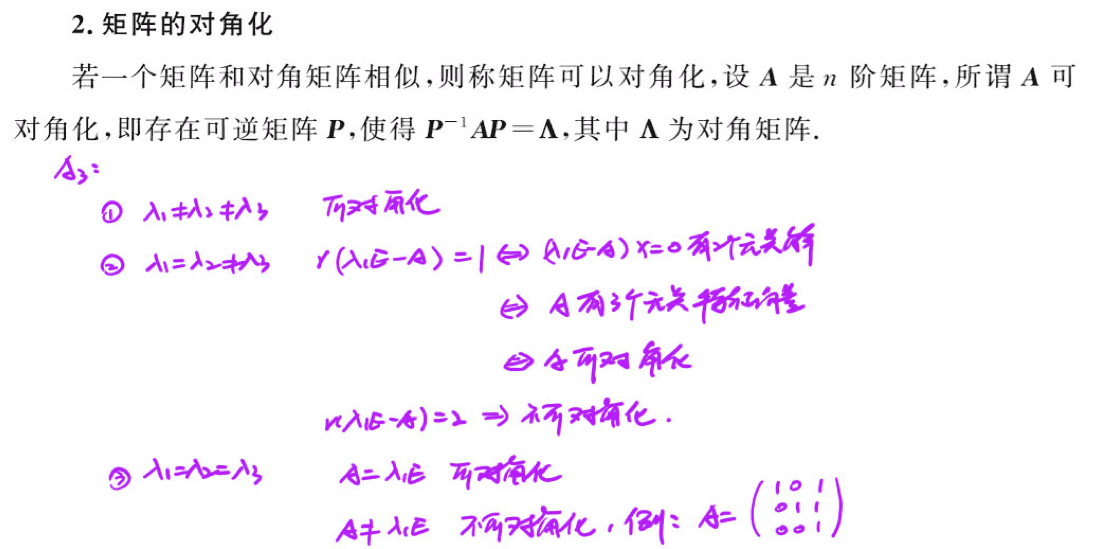 2. 矩阵的对角化
若一个矩阵和对角矩阵相似,则称矩阵可以对角化,设 A 是 n 阶矩阵,所谓 A 可
对角化,即存在可逆矩阵 P,使得 P⁻¹AP=Λ,其中 Λ 为对角矩阵.
A₃:
① λ₁≠λ₂≠λ₃ 可对角化
② λ₁=λ₂≠λ₃ r(λ₁E-A)=1 ⇔ (λ₁E-A)x=0 有2个无关解
⇔ A有3个无关特征向量
⇔ A可对角化
r(λ₁E-A)=2 ⇒ 不可对角化.
③ λ₁=λ₂=λ₃ A=λ₁E 可对角化
A≠λ₁E 不可对角化, 例: A=(1 0 1
0 1 1
0 0 1)